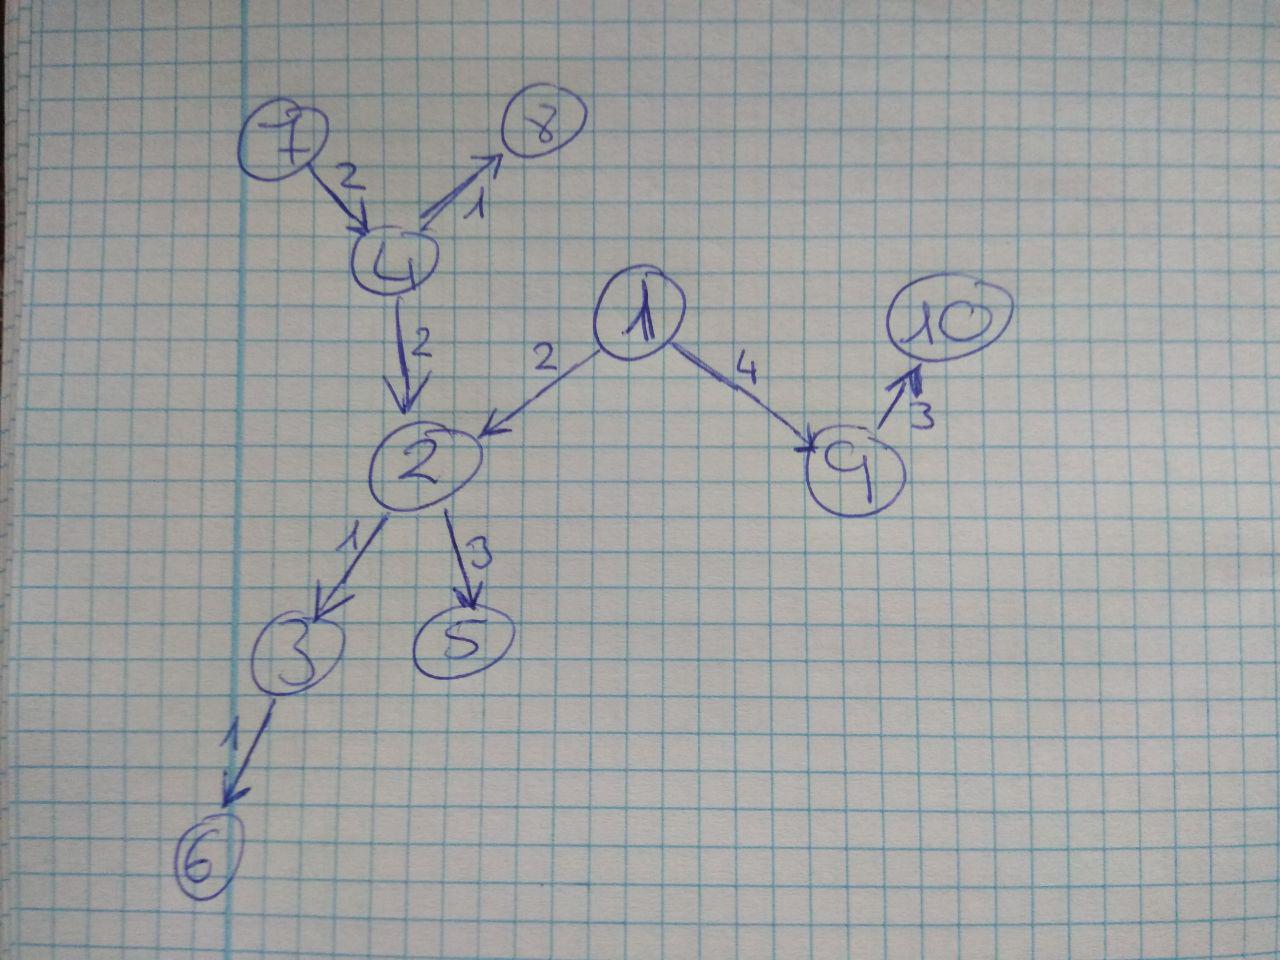 7
8
2
1
4
1
10
2
2
4
3
2
9
1
3
3
5
1
6